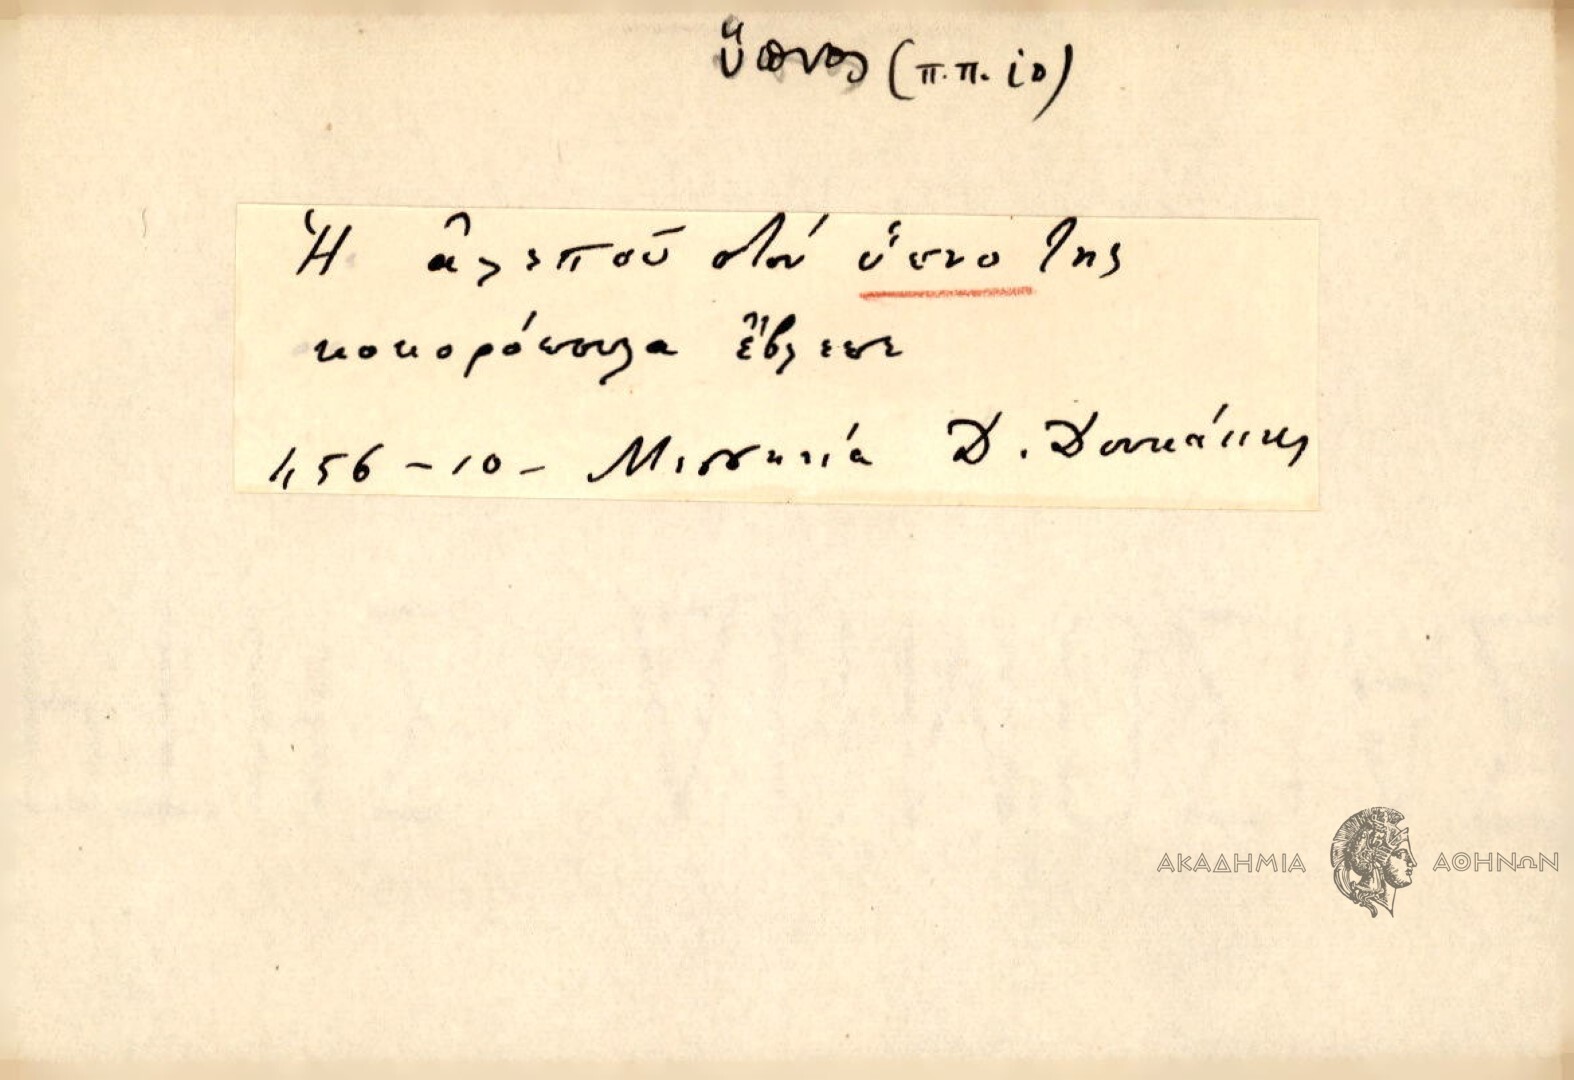 ὕπνος (π.π. ιο)
Ἡ ἀλεποῦ στόν ὕπνο της
κοκορόπουλα ἔβλεπε
456 - 10 - Μεσσηνία Δ. Δουκάκης
ΑΚΑΔΗΜΙΑ ΑΘΗΝΩΝ